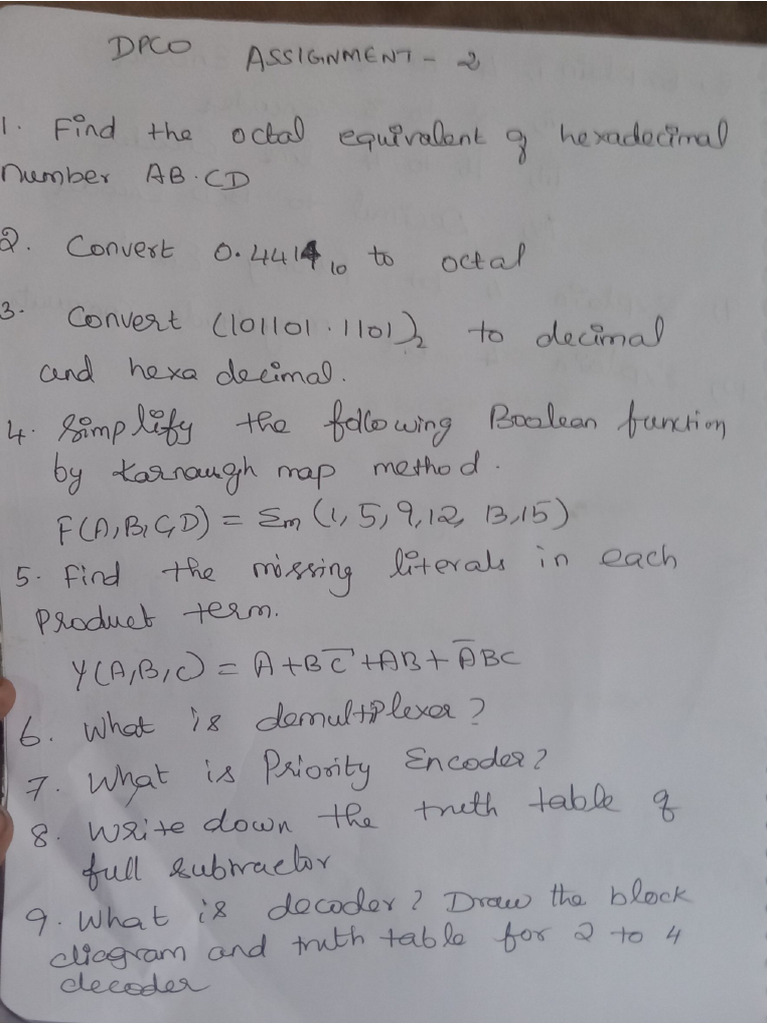 DPCO ASSIGNMENT - 2
1. Find the octal equivalent of hexadecimal
number AB.CD
2. Convert 0.4414₁₀ to octal
3. Convert (101101.1101)₂ to decimal
and hexa decimal.
4. Simplify the following Boolean function
by Karnaugh map method.
F(A,B,C,D) = Σm (1, 5, 9, 12, 13, 15)
5. Find the missing literals in each
product term.
Y(A,B,C) = A + BC̅ + AB + A̅BC
6. What is demultiplexer?
7. What is Priority Encoder?
8. Write down the truth table of
full subtractor
9. What is decoder? Draw the block
diagram and truth table for 2 to 4
decoder